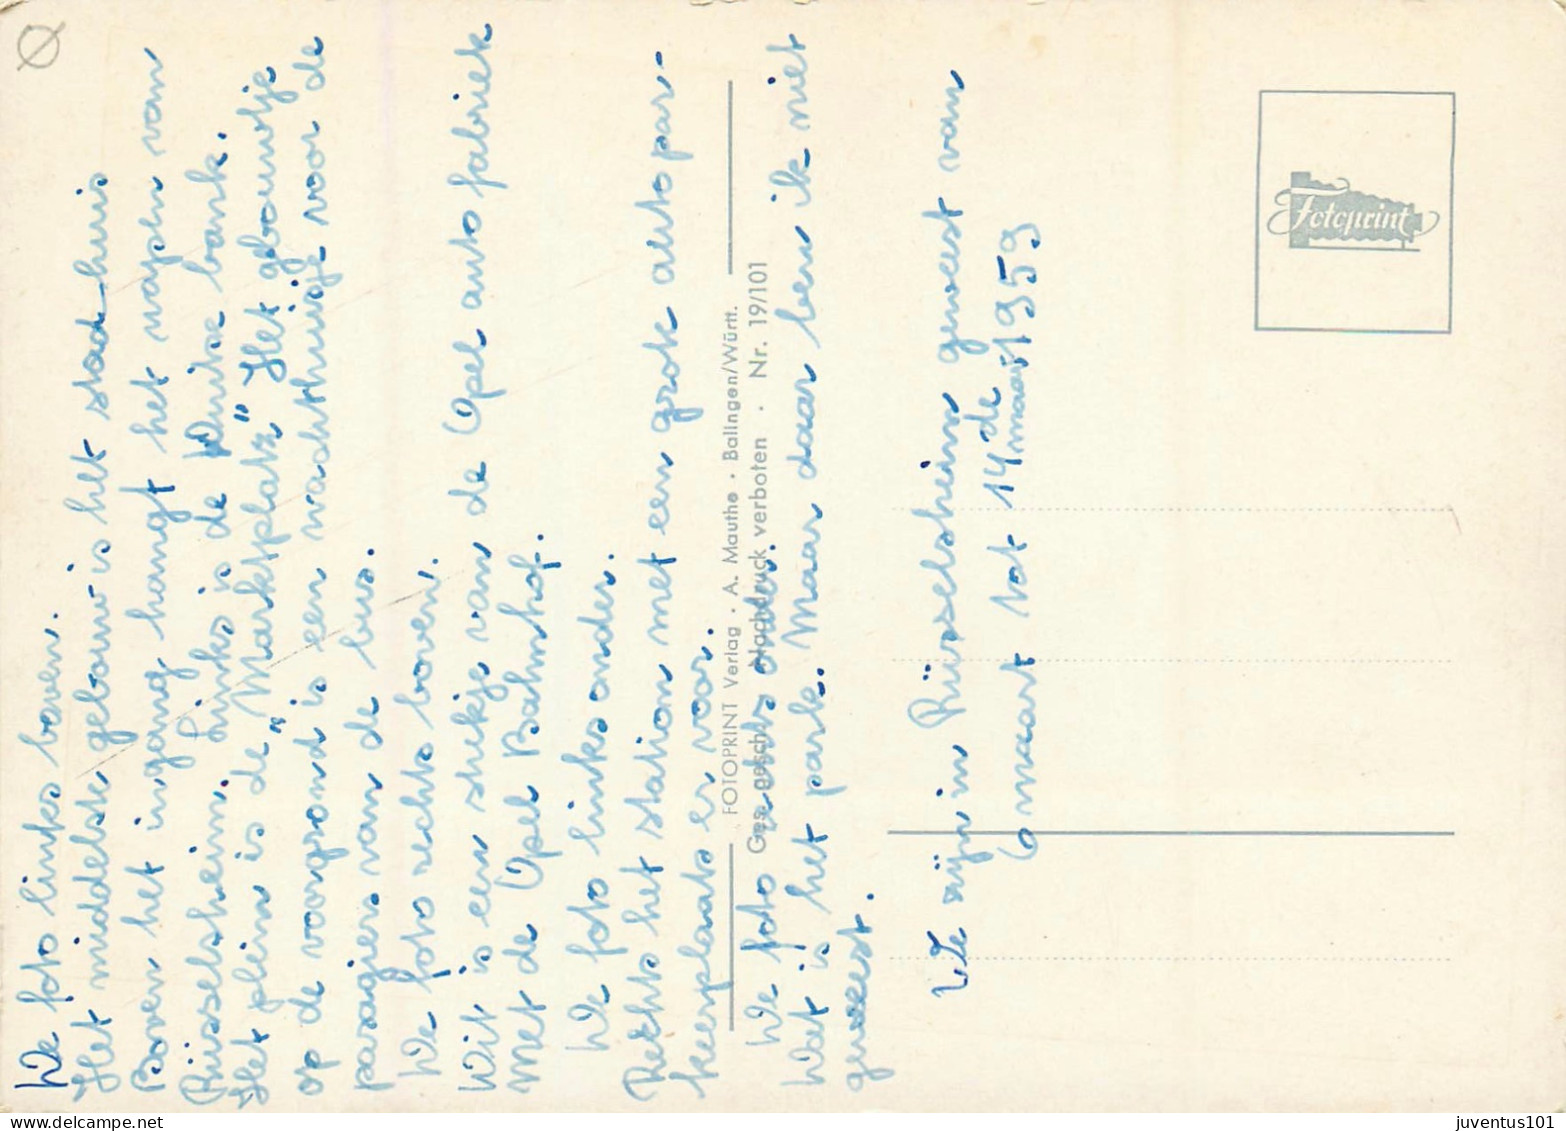 De foto links boven.
Het middelste gebouw is het stad-huis
Boven het ingang hangt het wapen van
Rüsselsheim. Links is de Duitse bank.
Het plein is de „Marktplatz" Het gebouwtje
op de voorgrond is een wachthuisje voor de
pasagiers van de bus.
De foto rechts boven.
Dit is een stukje van de Opel auto fabriek
met de Opel Bahnhof.
De foto links onder.
Rechts het station met een grote auto par-
keerplaats er voor.
FOTOPRINT Verlag · A. Mauthe · Balingen/Württ.
Ges. gesch. Nachdruck verboten · Nr. 19/101
De foto rechts onder.
Dat is het park. Maar daar ben ik niet
geweest.
We zijn in Rüsselsheim geweest van
6 maart tot 14 de maart 1959
Fotoprint
juventus101